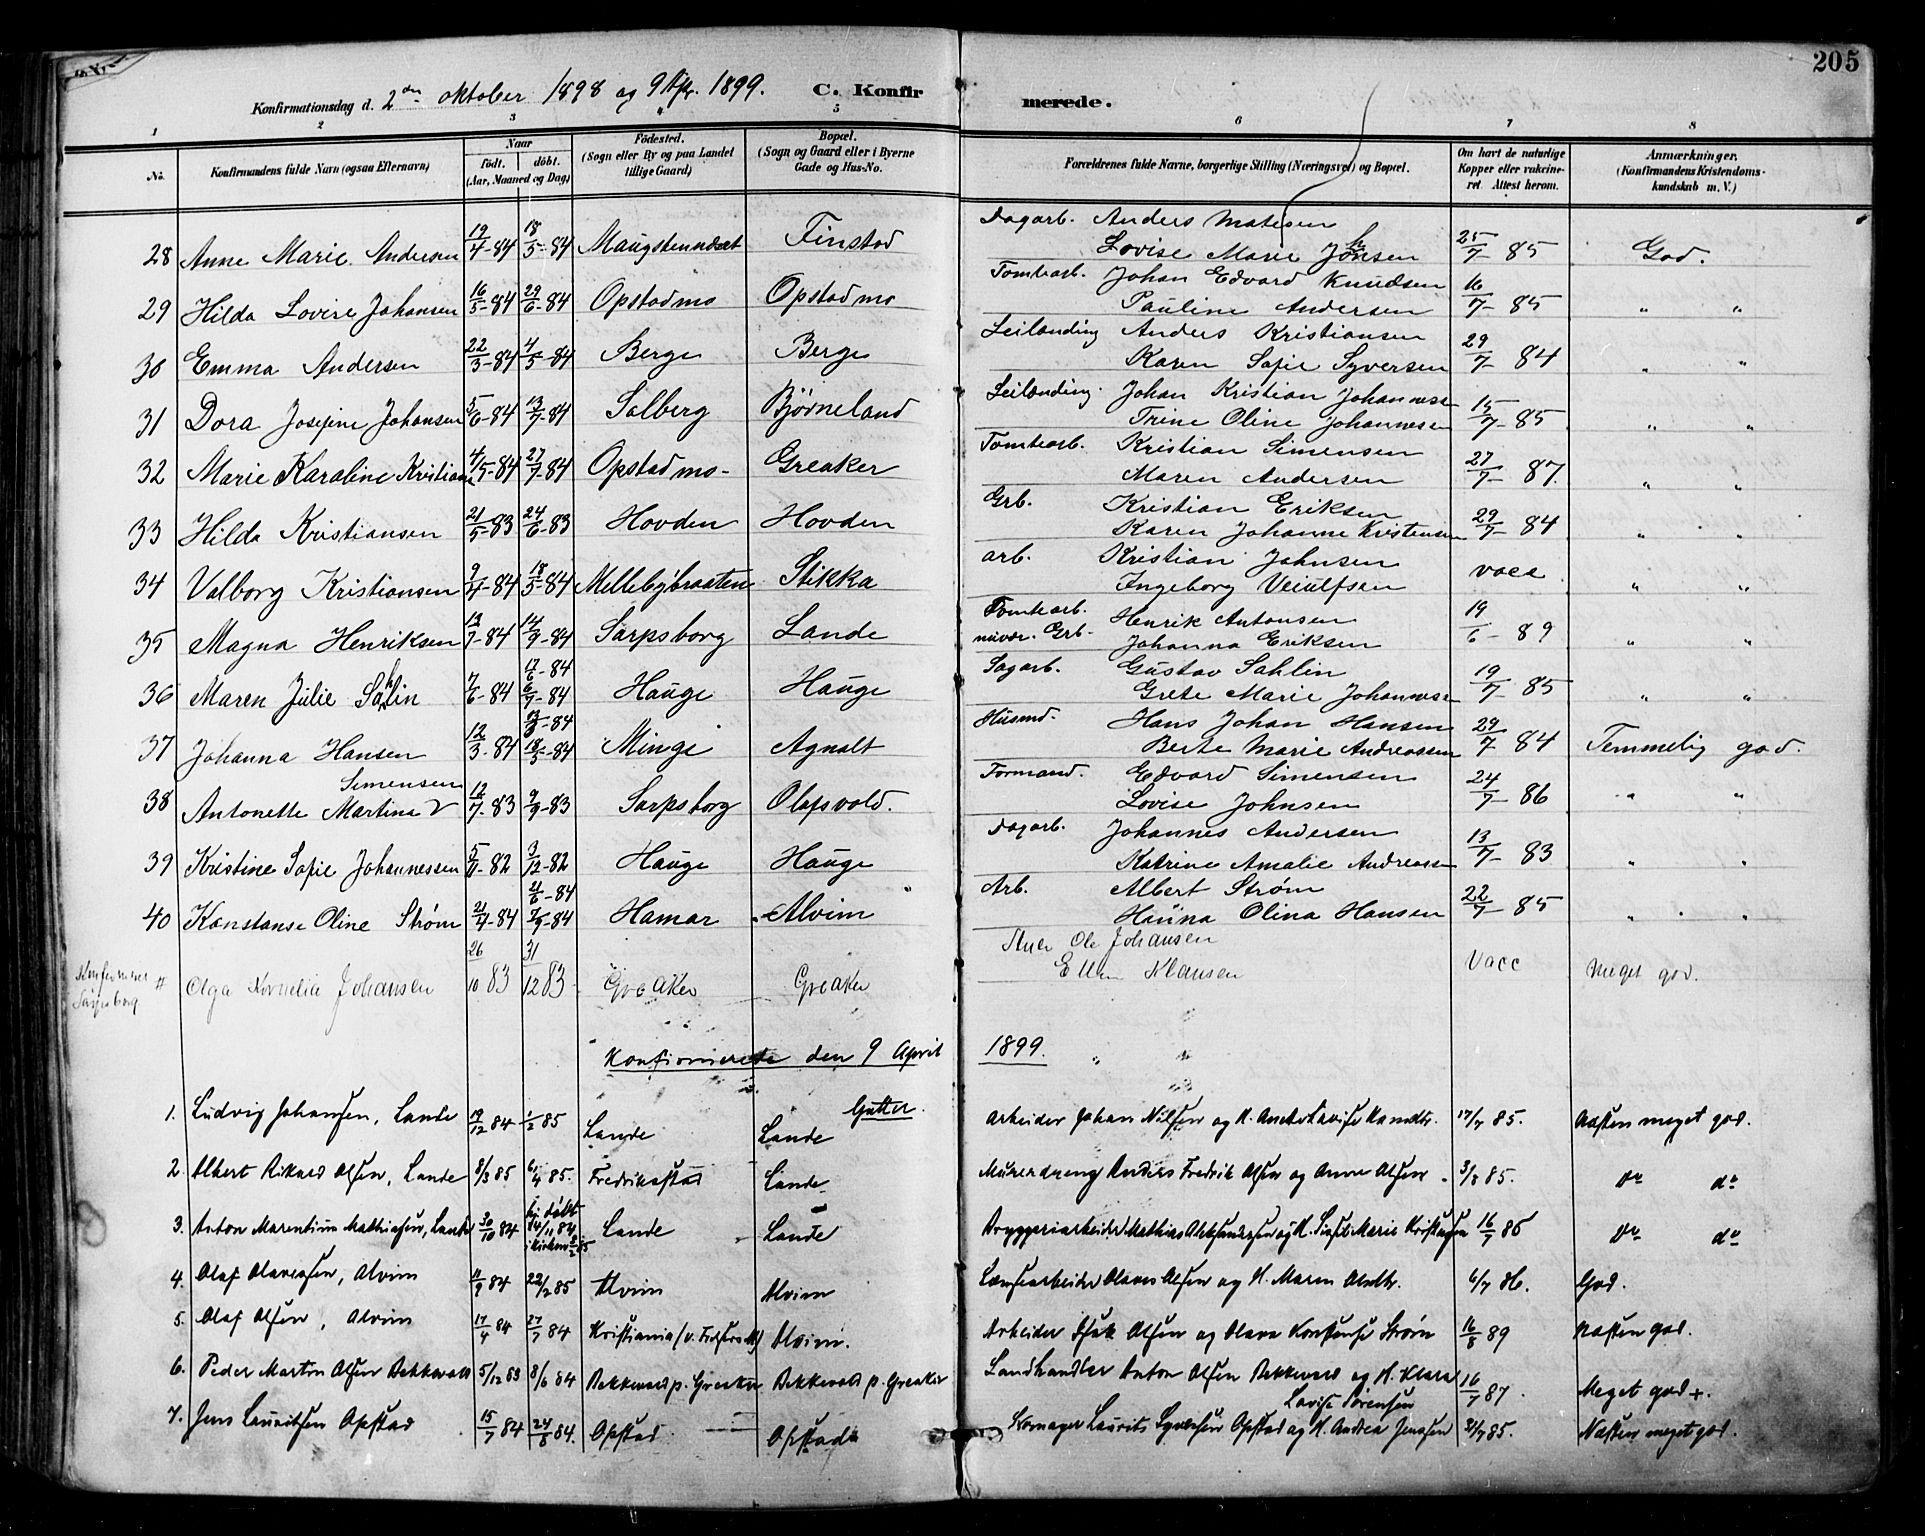 205
Konfirmationsdag d. 2den oktober 1898 og 9 Apr. 1899. C. Konfirmerede.
1 2 3 4 5 6 7 8
No. Konfirmandens fulde Navn (ogsaa Efternavn) Naar födt. döbt. (Aar, Maaned og Dag) Födested. (Sogn eller By og paa Landet tillige Gaard) Bopæl. (Sogn og Gaard eller i Byerne Gade og Hus-No. Forældrenes fulde Navne, borgerlige Stilling (Næringsvei) og Bopæl. Om havt de naturlige Kopper eller vakcineret. Attest herom. Anmærkninger. (Konfirmandens Kristendomskundskab m. V.)
28 Anne Marie Andersen 19/4-84 18/5-84 Maugstenneset Finstad Dagarb. Anders Matisen
Lovise Marie Johnsen 25/7-85 God.
29 Hilda Lovise Johansen 16/5-84 29/6-84 Opstadmo Opstadmo Tomtearb. Johan Edvard Knudsen
Pauline Andersen 16/7-85 " "
30 Emma Andersen 22/3-84 4/5-84 Berge Berge Leilænding Anders Kristiansen
Karen Sofie Syversen 29/7-84 " "
31 Dora Josefine Johansen 5/6-84 13/7-84 Solberg Bjørneland Leilænding. Johan Kristian Johannessen
Trine Oline Johannessen 15/7-85 " "
32 Marie Karoline Kristians 4/5-84 27/7-84 Opstadmo- Greaker Tomtearb. Kristian Simensen
Maren Andersen 27/7-87. " "
33 Hilda Kristiansen 21/5-83 24/6-83 Hovden Hovden Grb. Kristian Eriksen
Karen Johanne Kristensen 29/7-84 " "
34 Valborg Kristiansen 9/4-84 18/5-84 Mellebybraaten Stikka arb. Kristian Johnsen
Ingeborg Veiulfsen vacc " "
35 Magna Henriksen 13/7-84 14/9-84 Sarpsborg Lande Tomtearb. Henrik Antonsen
nuvær. Grb. Johanna Eriksen 19/6-89 " "
36 Maren Julie Sahlin 7/6-84 17/6-84 6/7-84 Hauge Hauge Sagarb. Gustav Sahlin
Grete Marie Johannessen 19/7-85 " "
37 Johanna Hansen 12/3-84 18/5-84 Minge Agnalt Husmd. Hans Johan Hansen
Berte Marie Andreassen 29/7 84 Temmelig god.
Simensen
38 Antonette Martine 12/7-83 9/9-83 Sarpsborg Olafsvold. Formand. Edvard Simensen
Lovise Johnsen 24/7-86 " "
39 Kristine Sofie Johannessen 5/11-82 3/12-82 Hauge Hauge Dagarb. Johannes Andersen
Katrine Amalie Andreassen 13/7-83 " "
40 Konstanse Oline Strøm 21/4-84 21/6-84 7/9-84 Hamar Alvim Arb. Albert Strøm
Hanna Olina Hansen 22/7-85 " "
Sarpsborg # Olga Kornelia Johansen 26/10 83 31/12 83 Greaker Greaker Ole Johansen
Ellen Hansen Vacc meget god.
Konfirmerede den 9 April 1899.
Gutter.
1. Ludvig Johansen, Lande 19/12 84 1/2 85 Lande Lande Arbeider Johan Nilsen og H. 17/7 85. Næsten meget god.
2. Albert Rikard Olsen, Lande 8/3 85 6/4 85. Fredriksstad Lande Murerdreng Anders Fredrik Olsen og Anne Olsen 3/8 85. do do
3. Anton Marentius Mathiesen, Lande 30/10 84 hj. døbt 14/11 84 i kirken Lande Lande Bryggeriarbeider Mathias og H. Marie 16/7 85 do do
4. Olaf Olavessen, Alvim 11/9 84 22/2 85 Alvim Alvim Lænsearbeider Olaves Olsen og H. Maren 6/7 86. God.
5. Olaf Olsen, Alvim 17/4 84 27/7 84 Kristiania Alvim. Arbeider Isak Olsen og Olava Konstanse Strøm 16/8 89 Næsten god.
6. Peder Martin Olsen Bekkevold 5/12 83 8/6 84 Bekkevold p. Greaker Bekkevold p. Greaker Landhandler Anton Olsen Bekkevold og H. Klara
Lovise Sørensen 16/7 87. Meget god +.
7. Jens Lauritsen Opstad 15/7 84 24/8 84. Opstad Opstad Skomager Laurits Syversen Opstad og H. Andrea Jensen 31/7 85. Næsten meget god.